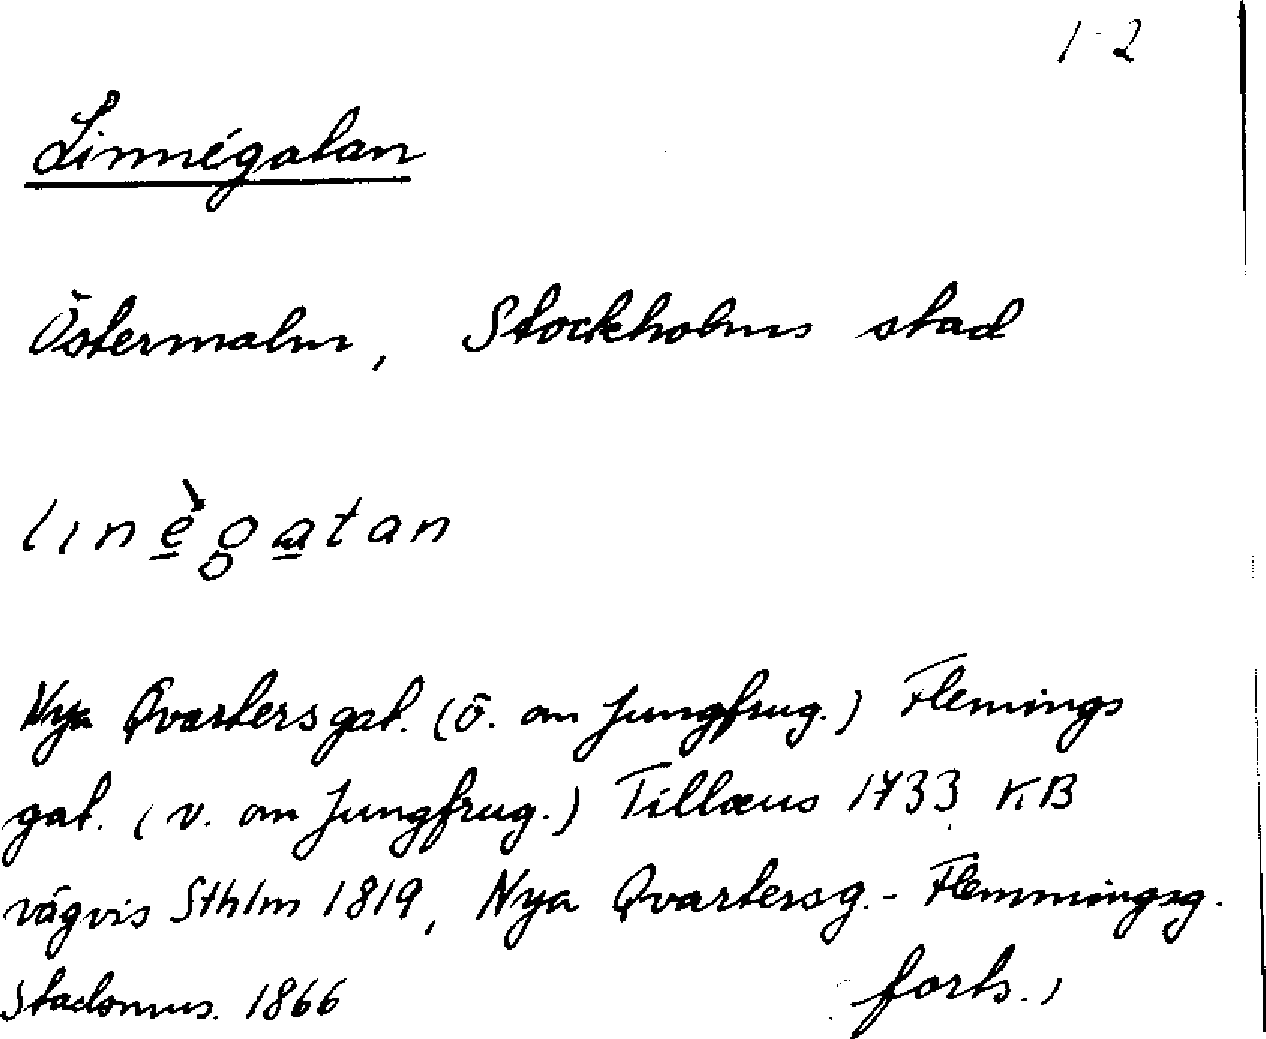 1-2
Linnégatan
Östermalm, Stockholms stad
linègatan
Nya Qvartersgat. (ö. om Jungfrug.) Flemings
gat. (v. om Jungfrug.) Tillæus 1733 KB
vägvis Sthlm 1819, Nya Qvartersg.- Flemmingsg.
Stadsmus. 1866 forts.)